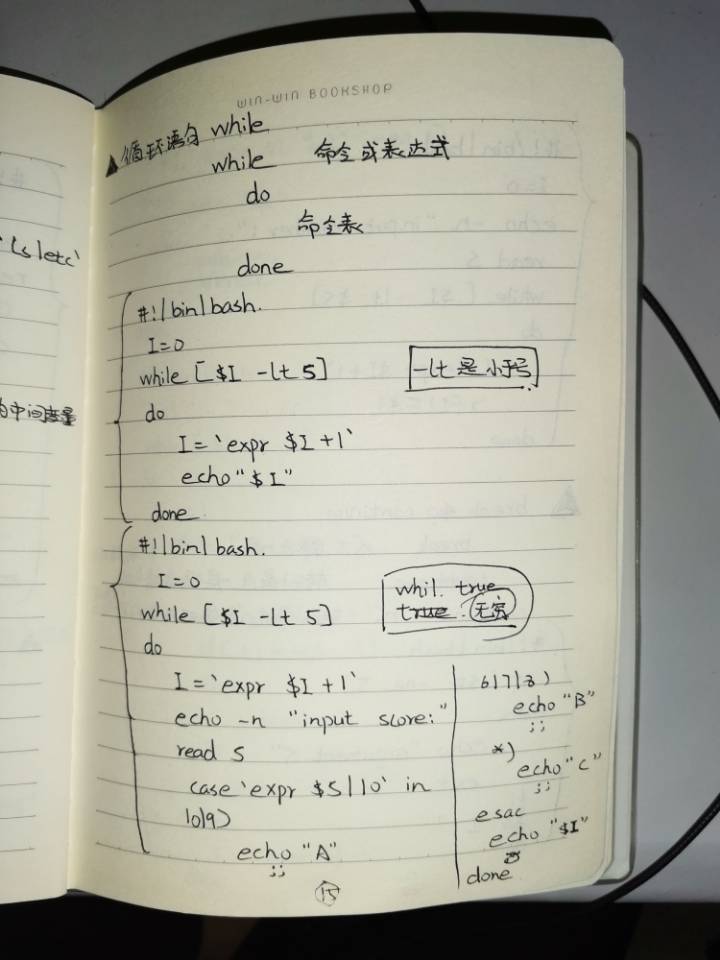 WIN-WIN BOOKSHOP
▲循环语句 while
while 命令或表达式
do
命令表
done
#!/bin/bash.
I=0
while [$I -lt 5]
-lt 是小于号.
do
I=`expr $I +1`
echo "$I"
done
#!/bin/bash.
I=0
while [$I -lt 5]
whil. true
true. 无穷
do
I=`expr $I +1`
echo -n "input score:"
read S
case `expr $S/10` in
10|9)
echo "A"
;;
6|7|8)
echo "B"
;;
*)
echo "C"
;;
esac
echo "$I"
done
15
`ls /etc`
中间变量